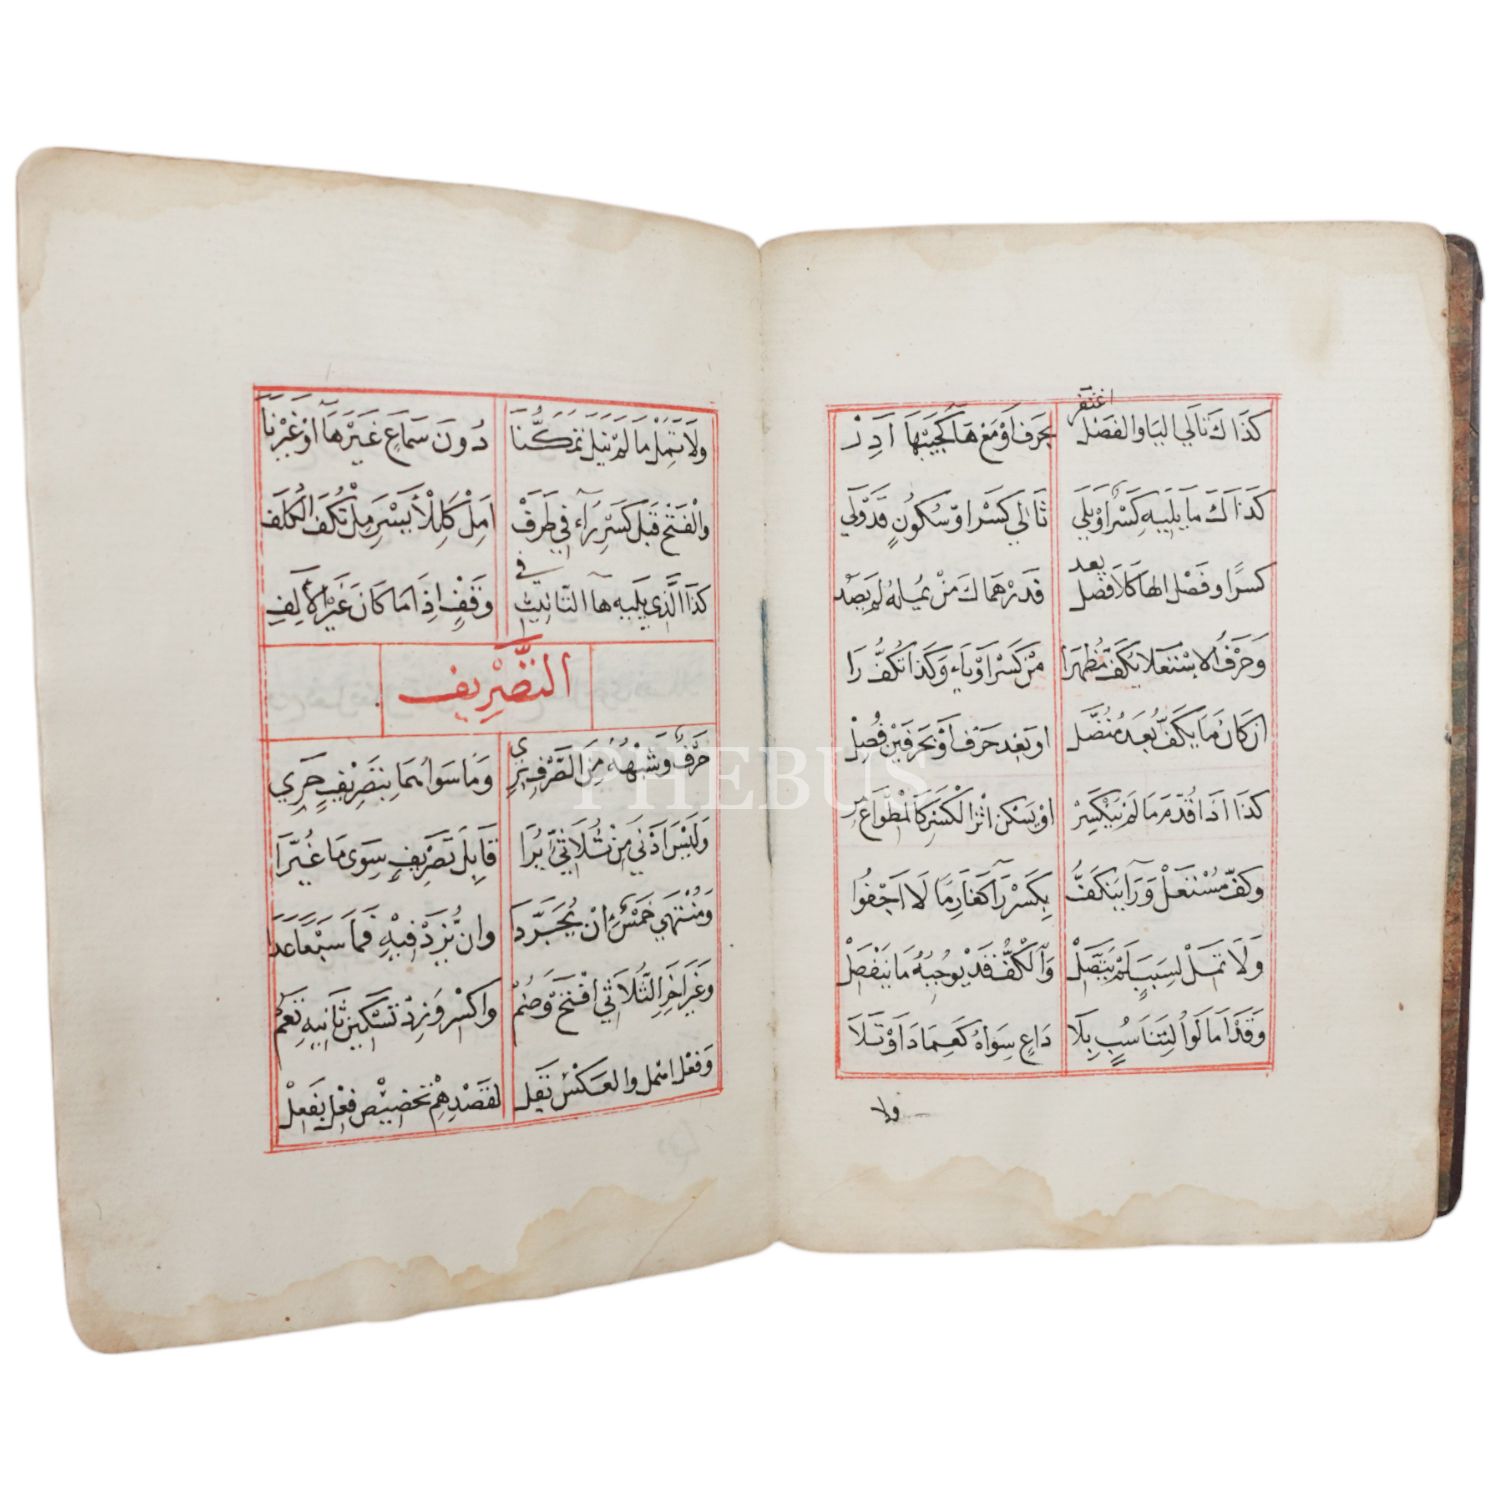 كذاك تالي اليا والفصل اغتفر بحرف او مع ها كجيبها ادر
كذاك ما يليه كسر او يلي تالي كسر او سكون قد ولي
كسرا وفصل الها كلا فصل بعد فدرهماك من يمله لم يصد
وحرف الاستعلا يكف مظهرا من كسر او ياء وكذا تكف را
ان كان ما يكف بعد متصل او بعد حرف او بحرفين فصل
كذا اذا قدم ما لم ينكسر او يسكن اثر الكسر كالمطواع مر
وكف مستعل ورا ينكف بكسر را كغارما لا اجفوا
ولا تمل لسبب لم يتصل والكف قد يوجبه ما ينفصل
وقد امالوا لتناسب بلا داع سواه كعمادا وتلا
ولا
ولا تمل ما لم ينل تمكنا دون سماع غير ها او غير نا
والفتح قبل كسر راء في طرف امل كللأيسر مل تكف الكلف
كذا الذي يليه ها التانيث في وقف اذا ما كان غير الف
التصريف
حرف وشبهه من الصرف بري وما سواهما بتصريف حري
وليس ادنى من ثلاثي يرا قابل تصريف سوى ما غيرا
ومنتهى خمس ان تجردا وان يزد فيه فما سبعا عدا
وغير اخر الثلاثي افتح وضم واكسر وزد تسكين ثانيه تعم
وفعل اهمل والعكس يقل لقصدهم تخصيص فعل بفعل
PHEBUS